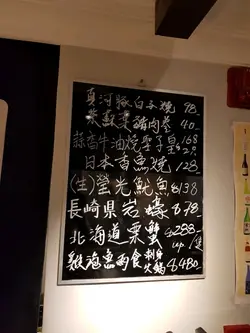 真河豚白子燒 98.-
紫蘇凍豬肉卷 40.-
蒜香牛油燒聖子皇 168 2隻
日本香魚燒 128.-
(生)螢光魷魚 $138
長崎県岩蠔 $78.-
北海道栗蟹 $288.- up/隻
雞泡魚兩食 刺身 火鍋 $480.-